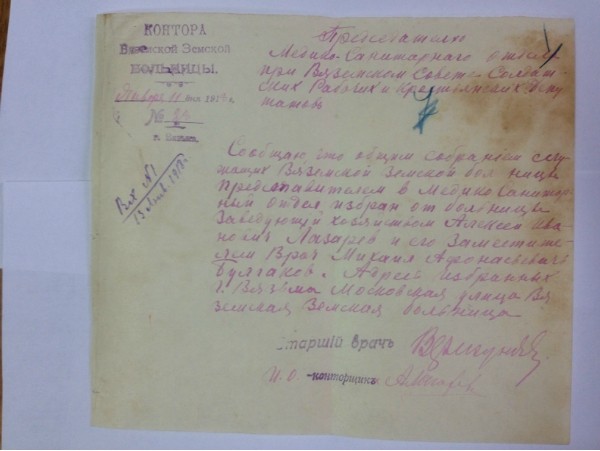 КОНТОРА
Вяземской Земской
БОЛЬНИЦЫ.
Января 11 дня 1918 г.
№ 23
г. Вязьма.
Вх № 1
13 Янв. 1918 г.
Председателю
Медико-Санитарнаго отдела
при Вяземском Совете Солдат-
ских Рабочих и Крестьянских депу
татов
Сообщаю, что общим собранием слу
жащих Вяземской Земской бол ницы
Представителем в Медико Санитар-
ный отдел избран от больницы
Заведующий хозяйством Алексей Ива
новичъ Лазарев и его Заместите-
лем Врач Михаил Афонасьевич
Булгаков. Адрес избранных
г. Вязьма Московская улица Вя
земская Земская больница
Старшій врачъ
И. О. конторщикъ